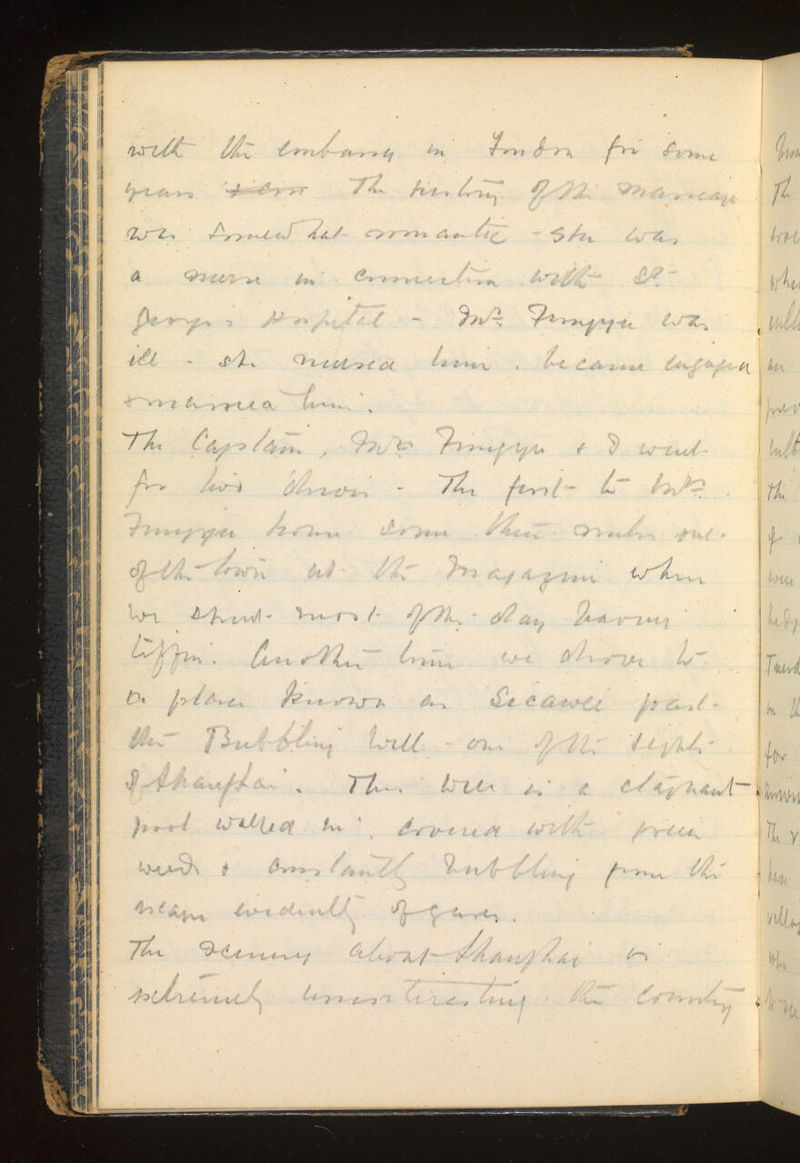 with the embassy in London for some
years The history of the marriage
was somewhat romantic - she was
a nurse in connection with St.
George's Hospital - Mr. Fungyee was
ill - she nursed him, became engaged
& married him.
The Captain, Mrs Fungyee & I went
for two drives - The first to Mrs.
Fungyee home some three miles out
of the town at the Magazine where
we spent most of the day having
tiffin. Another time we drove to
a place known as Sicawei past
the Bubbling Well - one of the sights
of Shanghai. The Well is a stagnant
pool walled in, covered with green
weeds & constantly bubbling from the
escape evidently of gases.
The scenery about Shanghai is
extremely uninteresting. the country